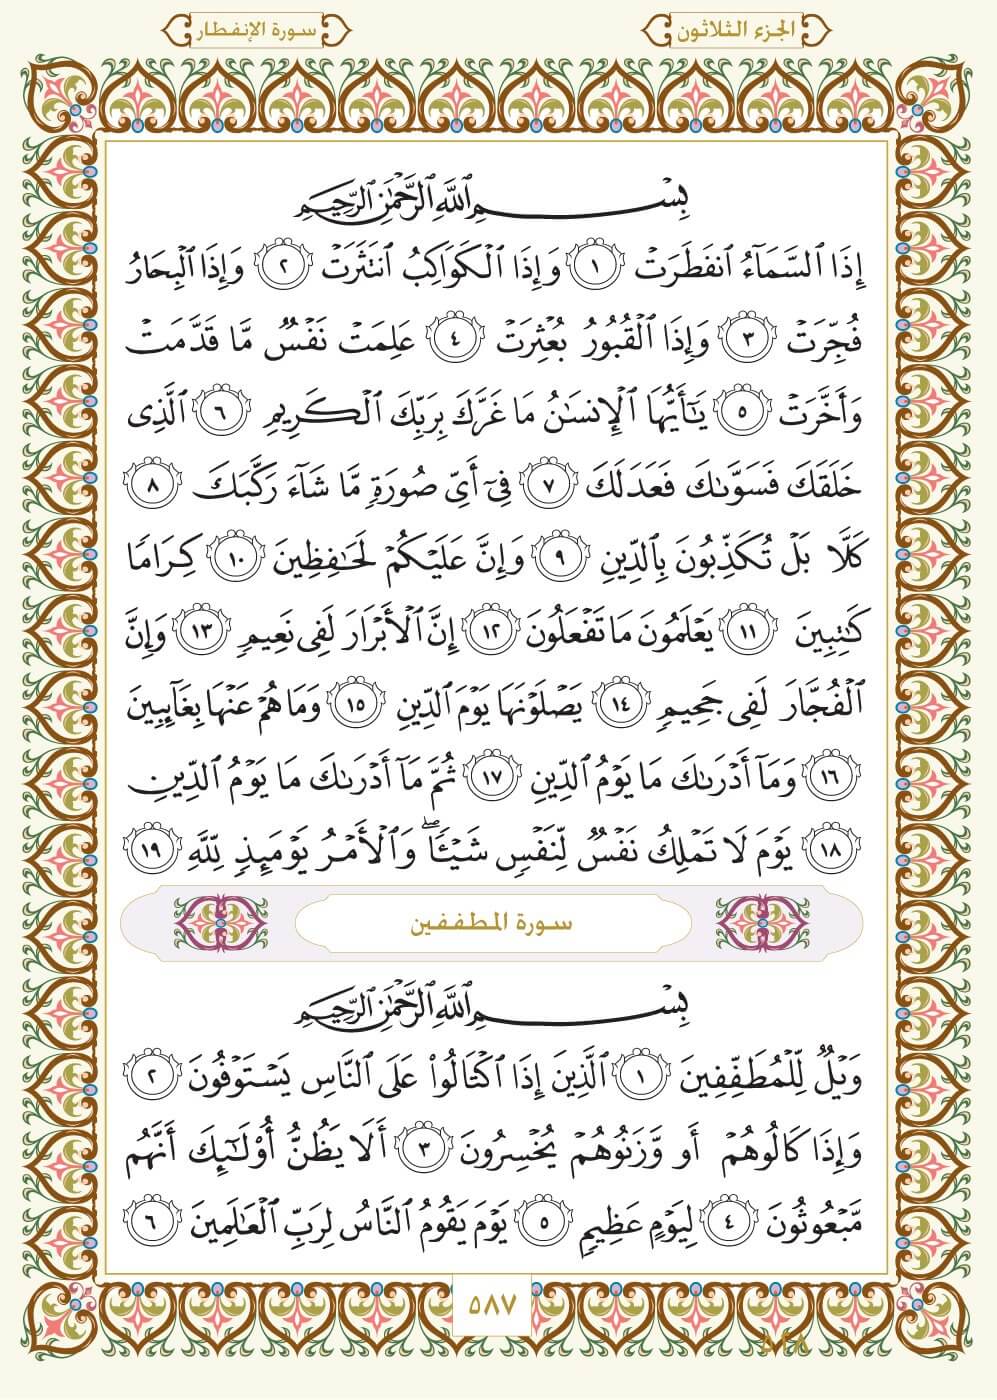 الجزء الثلاثون
سورة الإنفطار
بِسْمِ ٱللَّهِ ٱلرَّحْمَٰنِ ٱلرَّحِيمِ
إِذَا ٱلسَّمَآءُ ٱنفَطَرَتْ ١ وَإِذَا ٱلْكَوَاكِبُ ٱنتَثَرَتْ ٢ وَإِذَا ٱلْبِحَارُ
فُجِّرَتْ ٣ وَإِذَا ٱلْقُبُورُ بُعْثِرَتْ ٤ عَلِمَتْ نَفْسٌ مَّا قَدَّمَتْ
وَأَخَّرَتْ ٥ يَٰٓأَيُّهَا ٱلْإِنسَٰنُ مَا غَرَّكَ بِرَبِّكَ ٱلْكَرِيمِ ٦ ٱلَّذِى
خَلَقَكَ فَسَوَّىٰكَ فَعَدَلَكَ ٧ فِىٓ أَىِّ صُورَةٍ مَّا شَآءَ رَكَّبَكَ ٨
كَلَّا بَلْ تُكَذِّبُونَ بِٱلدِّينِ ٩ وَإِنَّ عَلَيْكُمْ لَحَٰفِظِينَ ١٠ كِرَامًا
كَٰتِبِينَ ١١ يَعْلَمُونَ مَا تَفْعَلُونَ ١٢ إِنَّ ٱلْأَبْرَارَ لَفِى نَعِيمٍ ١٣ وَإِنَّ
ٱلْفُجَّارَ لَفِى جَحِيمٍ ١٤ يَصْلَوْنَهَا يَوْمَ ٱلدِّينِ ١٥ وَمَا هُمْ عَنْهَا بِغَآئِبِينَ
١٦ وَمَآ أَدْرَىٰكَ مَا يَوْمُ ٱلدِّينِ ١٧ ثُمَّ مَآ أَدْرَىٰكَ مَا يَوْمُ ٱلدِّينِ
١٨ يَوْمَ لَا تَمْلِكُ نَفْسٌ لِّنَفْسٍ شَيْـًٔا ۖ وَٱلْأَمْرُ يَوْمَئِذٍ لِّلَّهِ ١٩
سورة المطففين
بِسْمِ ٱللَّهِ ٱلرَّحْمَٰنِ ٱلرَّحِيمِ
وَيْلٌ لِّلْمُطَفِّفِينَ ١ ٱلَّذِينَ إِذَا ٱكْتَالُوا۟ عَلَى ٱلنَّاسِ يَسْتَوْفُونَ ٢
وَإِذَا كَالُوهُمْ أَو وَّزَنُوهُمْ يُخْسِرُونَ ٣ أَلَا يَظُنُّ أُو۟لَٰٓئِكَ أَنَّهُم
مَّبْعُوثُونَ ٤ لِيَوْمٍ عَظِيمٍ ٥ يَوْمَ يَقُومُ ٱلنَّاسُ لِرَبِّ ٱلْعَٰلَمِينَ ٦
٥٨٧